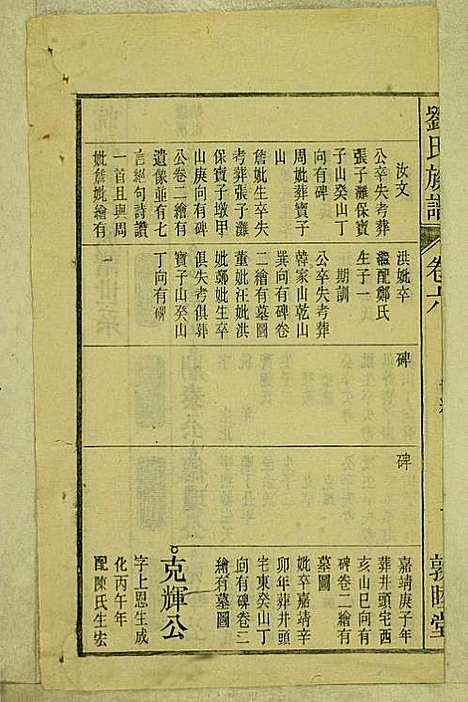 劉氏族譜
卷六
敦睦堂
汝文
公卒失考葬
張子灘保寶
子山癸山丁
向有碑
周妣葬寶子
山
詹妣生卒失
考葬張子灘
保寶子墩甲
山庚向有碑
公卷二繪有
遺像並有七
言絕句詩讚
一首且與周
妣詹妣繪有
洪妣卒
繼配鄭氏
生子一
期訓
公卒失考葬
韓家山乾山
巽向有碑卷
二繪有墓圖
董妣汪妣洪
妣鄭妣生卒
俱失考俱葬
寶子山癸山
丁向有碑
碑
碑
嘉靖庚子年
葬井頭宅西
亥山巳向有
碑卷二繪有
墓圖
妣卒嘉靖辛
卯年葬井頭
宅東癸山丁
向有碑卷二
繪有墓圖
克輝公
字上恩生成
化丙午年
配陳氏生宏